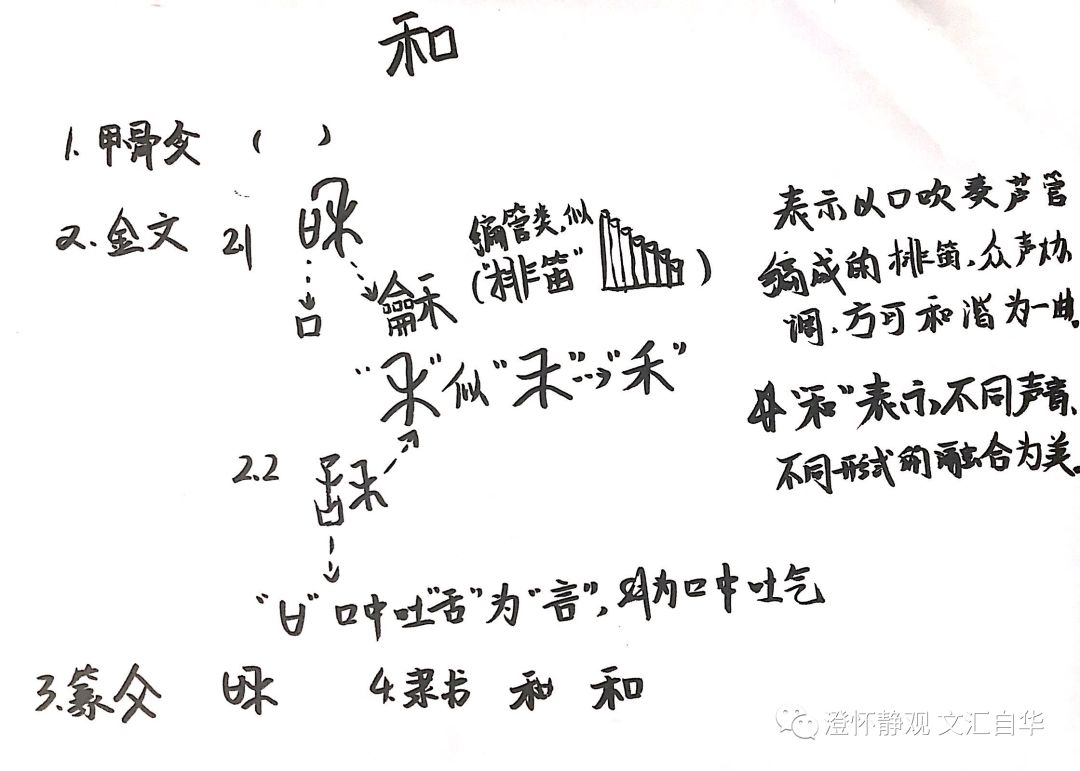 和
1.甲骨文 ( )
2.金文 2.1
口
龢
编管类,似
("排笛" )
"禾"似"禾"→"禾"
2.2
"ㅂ"口中吐"舌"为"言",2.1为口中吐气
3.篆文 4.隶书 和 和
表示以口吹麦芦管
编成的排笛,众声协
调,方可和谐为一曲。
"和"表示不同声音、
不同形式的融合为美。
澄怀静观 文汇自华